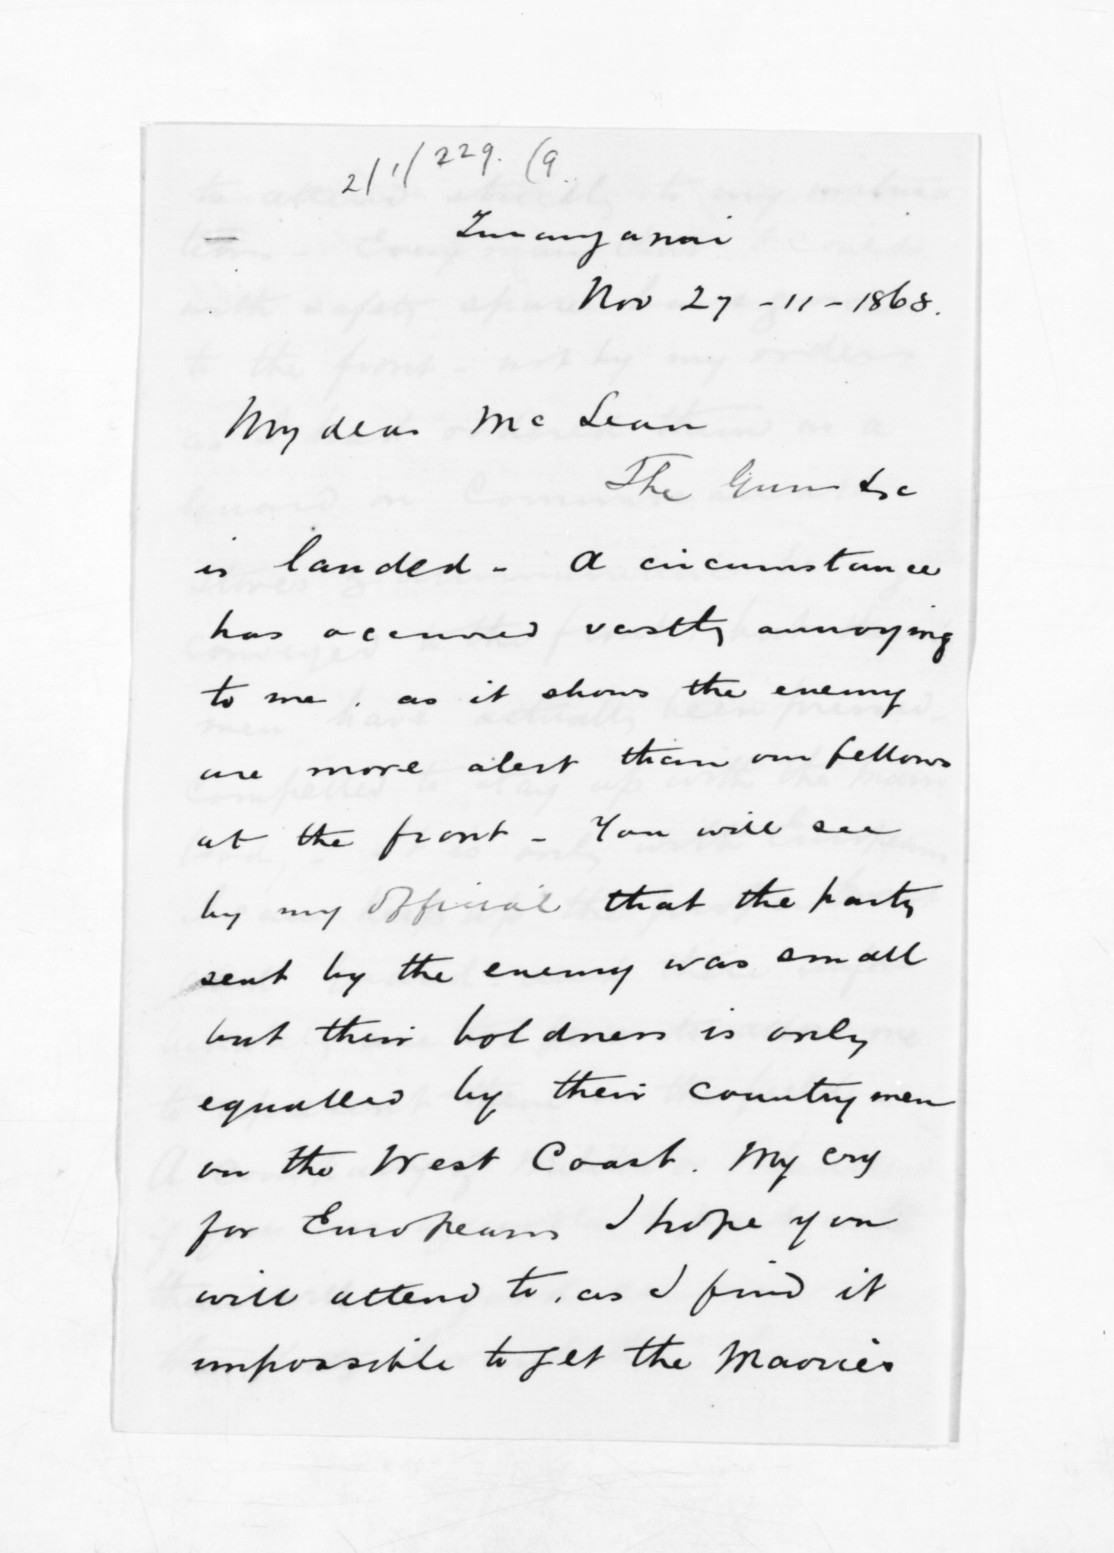 2/1/229. (9.
Turanganui
Nov 27 - 11 - 1868.
My dear McLean
The Guns &c
is landed - A circumstance
has occurred vastly annoying
to me, as it shows the enemy
are more alert than our fellows
at the front - You will see
by my official that the party
sent by the enemy was small
but their boldness is only
equalled by their countrymen
on the West Coast. My cry
for Europeans I hope you
will attend to, as I find it
impossible to get the Maories